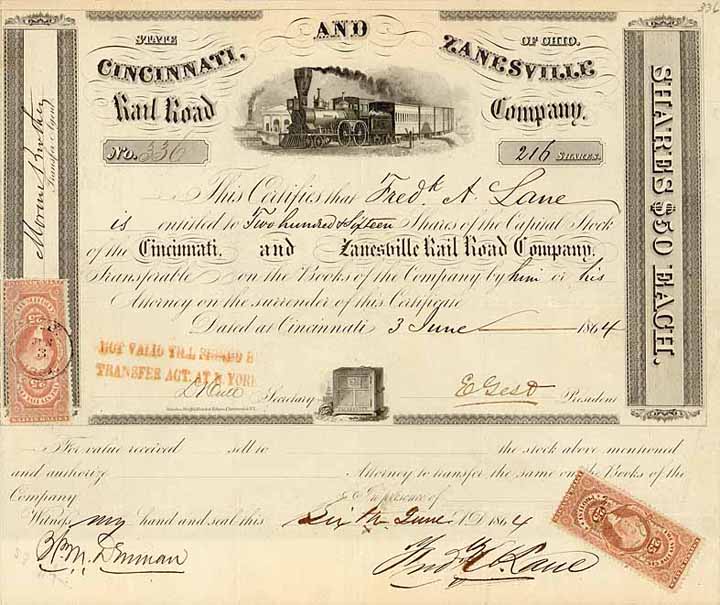 336
STATE AND OF OHIO.
CINCINNATI, ZANESVILLE
Rail Road Company.
No. 336
216 SHARES.
This Certifies that Fredk A. Lane
is entitled to Two hundred & Sixteen Shares of the Capital Stock
of the Cincinnati, and Zanesville Rail Road Company.
Transferable on the Books of the Company by him or his
Attorney on the surrender of this Certificate
Dated at Cincinnati 3 June 1864
NOT VALID TILL SIGNED B
TRANSFER AGT. AT N. YORK
Secretary E Gest President
Transfer Agent
SHARES $50 EACH.
For value received sell to the stock above mentioned
and authorize Attorney to transfer the same on the Books of the
Company In presence of
Witness my hand and seal this Sixth June AD 1864
Fredk A. Lane
25
25